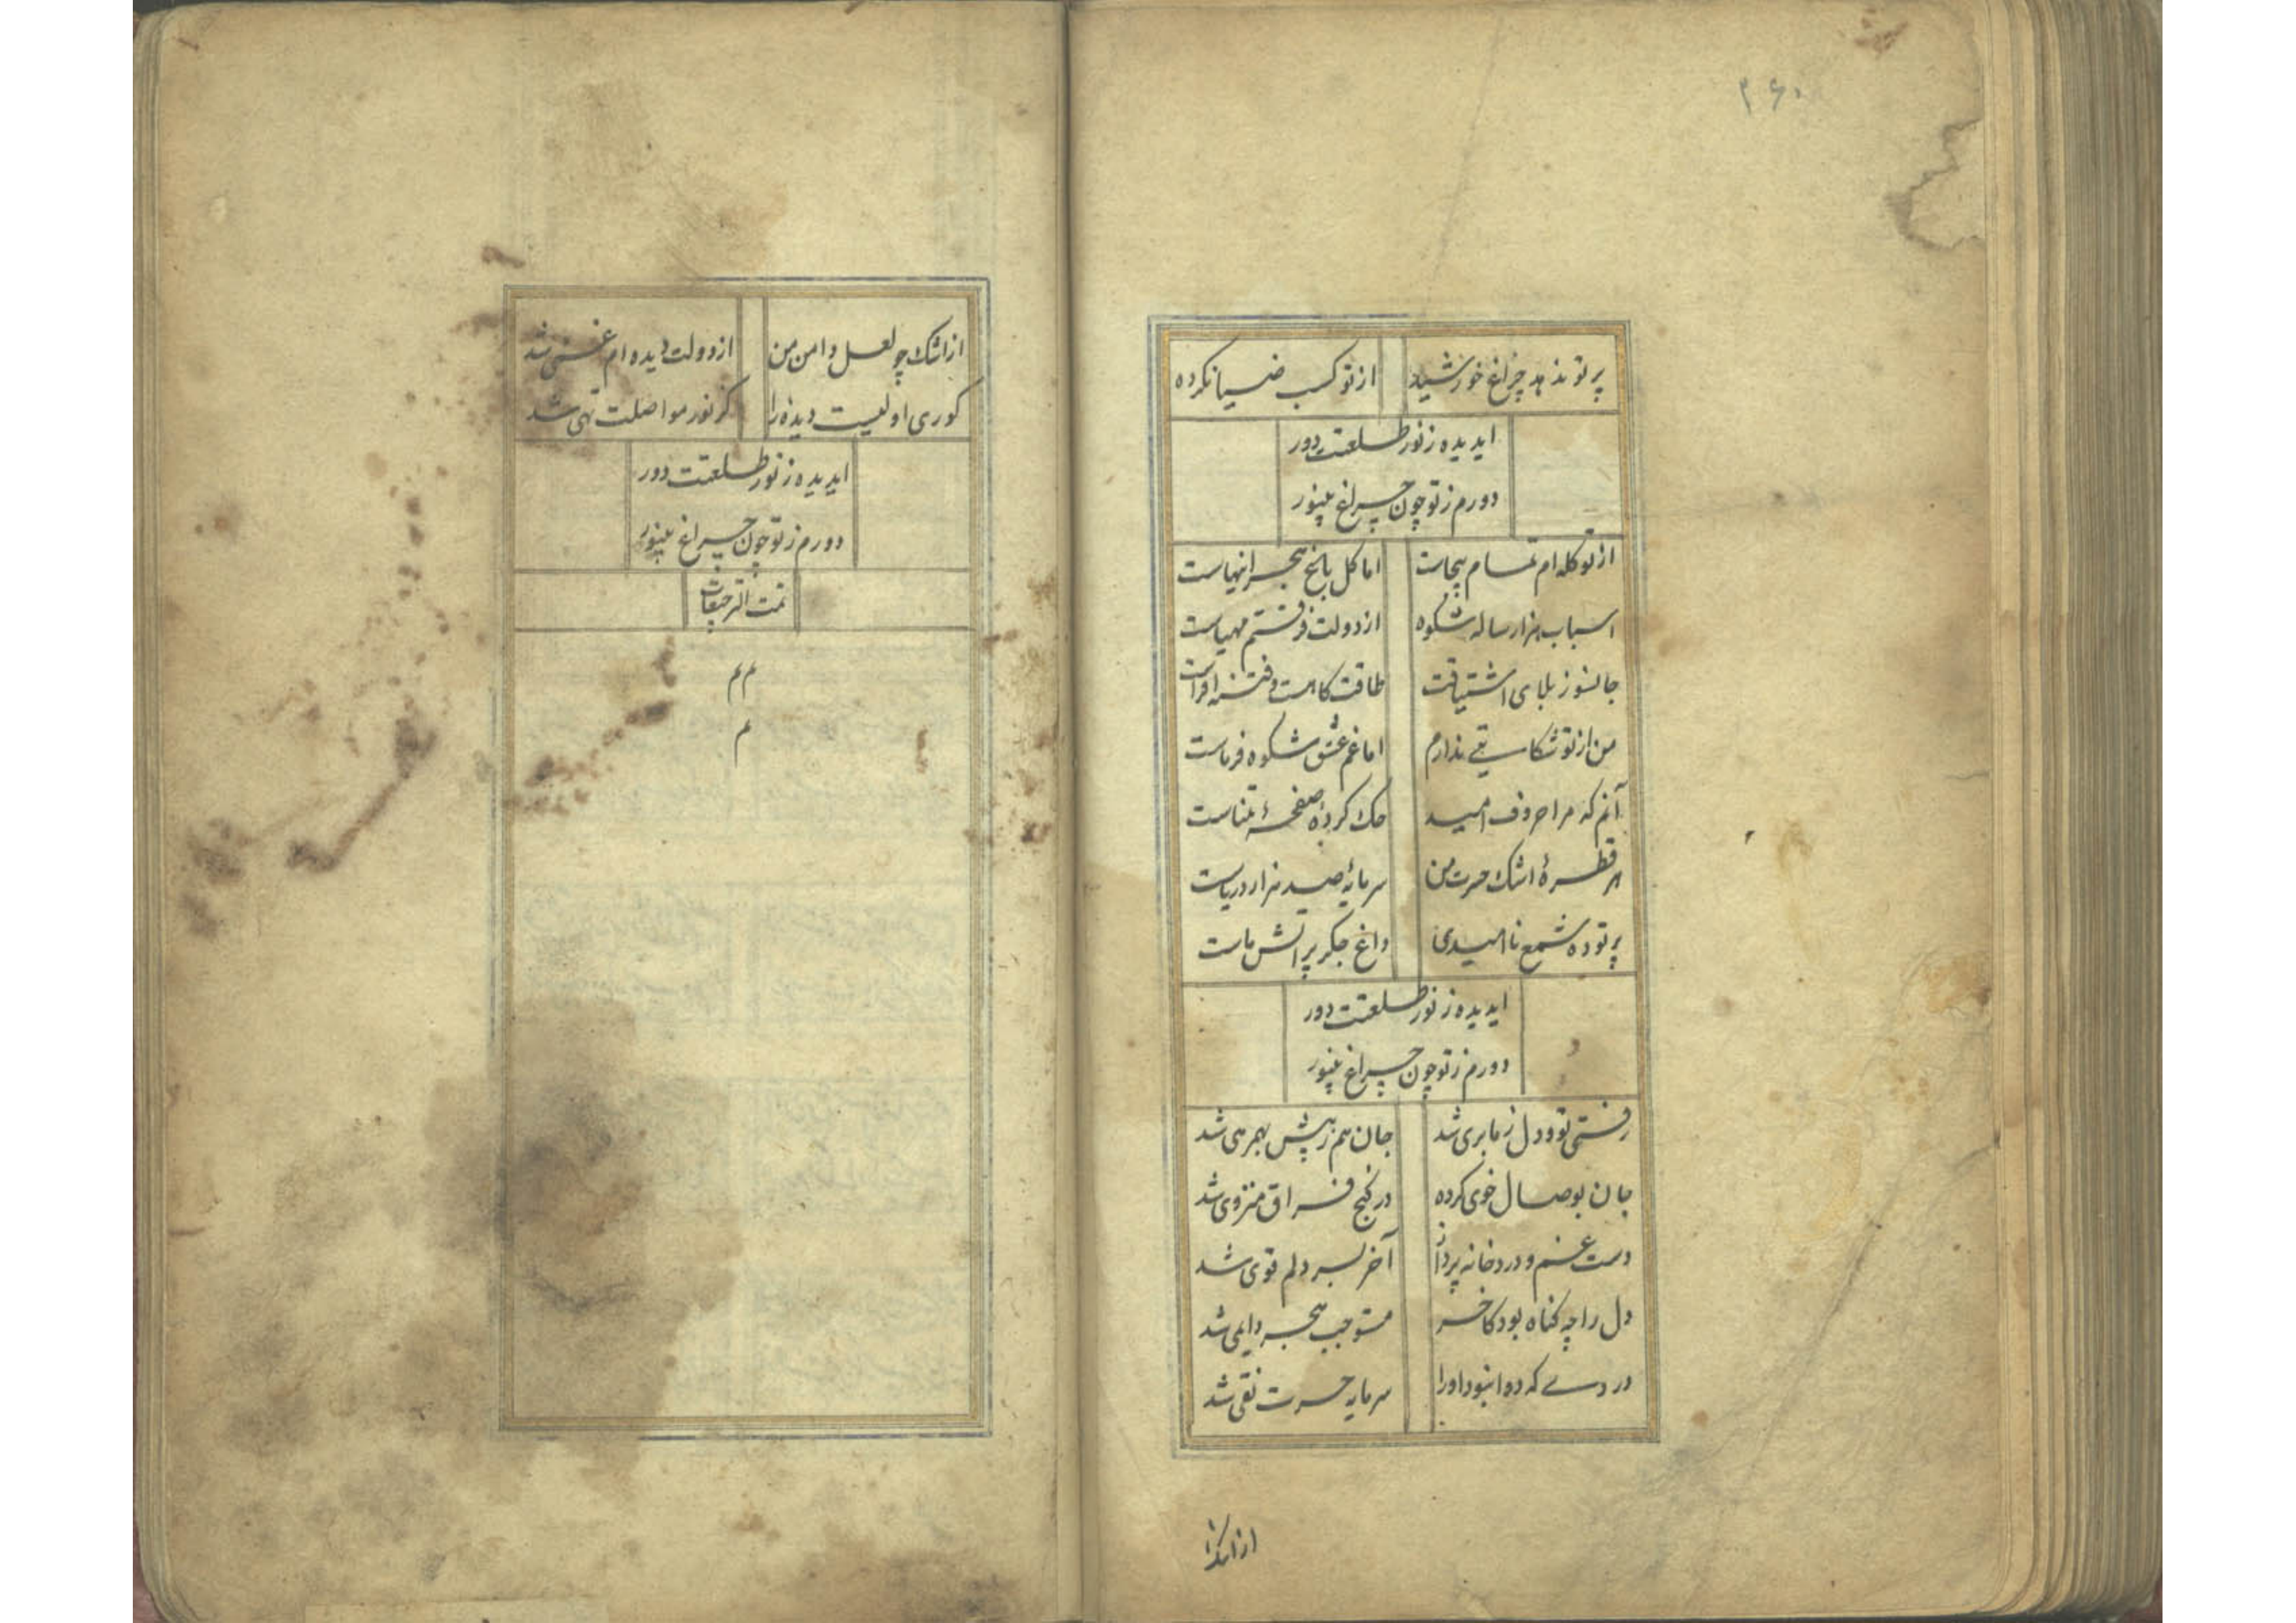 ۲۶۰
پرتو ندهد چراغ خورشید از تو کسب ضیا نکرده
ایدیده ز نور طلعتت دور
دورم ز تو چون چراغ بینور
از تو کله ام تمام بیجاست اما کل باغ هجر اینهاست
اسباب هزار ساله شکوه از دولت فرقتم مهیاست
جانسوز بلای اشتیاقت طاقت کاهست و فتنه افزاست
من از تو شکایتی ندارم اما غم عشق شکوه فرماست
آنم که مرا حروف امید حک کرده صفحهٔ تمناست
هر قطرهٔ اشک حسرت من سرمایهٔ صد هزار دریاست
پرتو ده شمع ناامیدی داغ جکر پر اتش ماست
ایدیده ز نور طلعتت دور
دورم ز تو چون چراغ بینور
رفتی تو و دل ز ما بری شد جان هم ز پیش بهمرهی شد
جان بوصال خوی کرده در کنج فراق منزوی شد
دست غم و درد خانه پرداز آخر بسر دلم قوی شد
دل را چه کناه بود کاخر مستوجب هجر دایمی شد
در دسے که دوا نبود او را سرمایه حسرت نقی شد
از اشک
از اشک چو لعل دامن من از دولت دیده ام غنی شد
کوری اولیست دیده را کز نور مواصلت تهی شد
ایدیده ز نور طلعتت دور
دورم ز تو چون چراغ بینور
تمت الترجیعات
م م
م